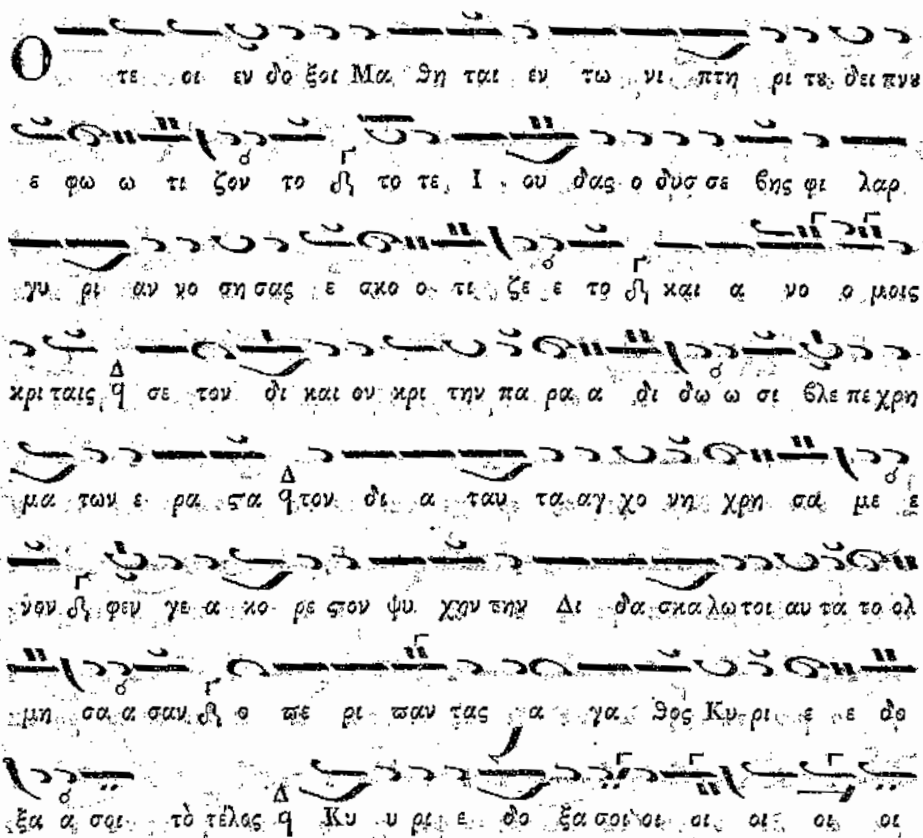 Ο τε οι εν δο ξοι Μα θη ται εν τω νι πτη ρι τȣ δει πνȣ
ε φω ω τι ζον το το τε Ι ου δας ο δυσ σε βης φι λαρ
γυ ρι αν νο ση σας ε σκο ο τι ζε ε το και α νο ο μοις
κρι ταις Δ σε τον δι και ον κρι την πα ρα α δι δω ω σι βλε πε χρη
μα των ε ρα ϛα Δ τον δι α ταυ τα αγ χο νη χρη σα με ε
νον φευ γε α κο ρε ϛον ψυ χην την Δι δα σκα λω τοι αυ τα το ολ
μη σα α σαν ο πε ρι παν τας α γα θος Κυ ρι ε ε δο
ξα α σοι το τέλος Δ Κυ υ ρι ε δο ξα σοι οι οι οι οι οι